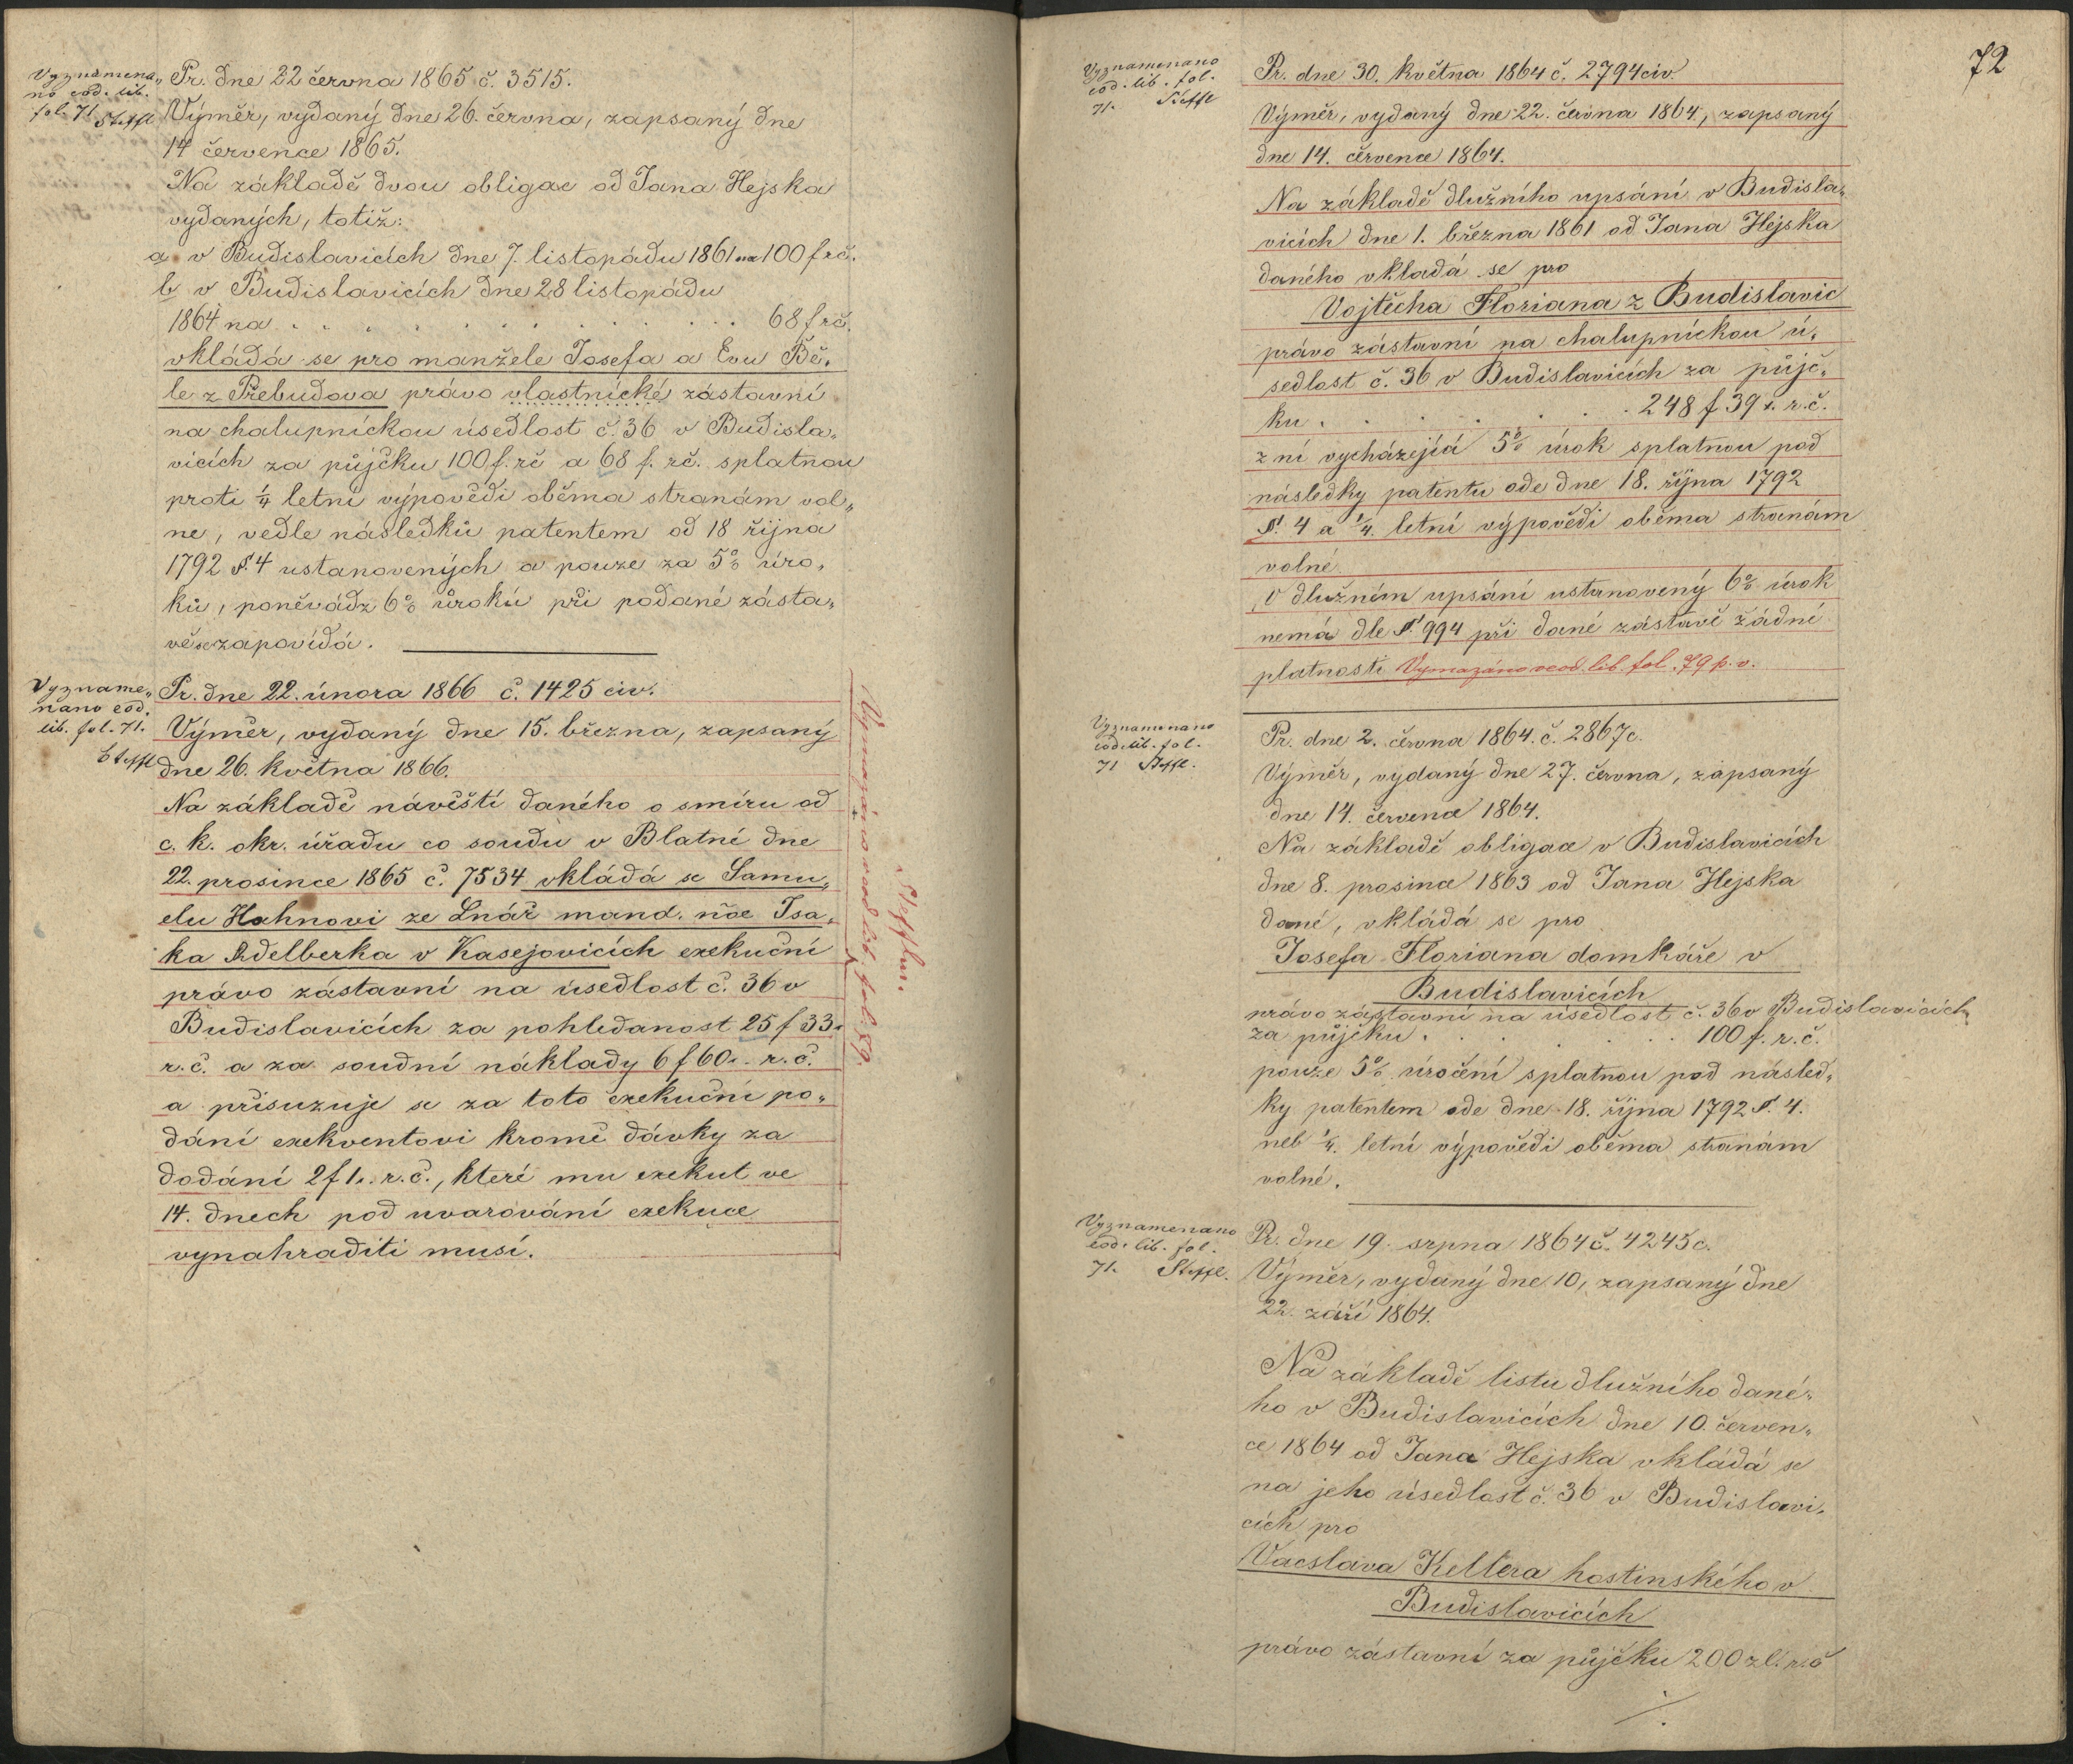 Vyznamena„
no eod. lib.
fol. 71 Steffl
Pr. dne 22 června 1865 č. 3515.
Výměr, vydaný dne 26. června, zapsaný dne
14 července 1865.
Na základě dvou obligac od Jana Hejska
vydaných, totiž:
a v Budislavicích dne 7. listopádu 1861 na 100 f rč.
b v Budislavicích dne 28 listopádu
1864 na . . . . . . . . . . . 68 f rč.
vkládá se pro manžele Josefa a Evu Bě„
le z Přebudova právo vlastnické zástavní
na chalupníckou úsedlost č. 36 v Budisla„
vicích za půjčku 100 f. rč a 68 f. rč. splatnou
proti 1/4 letní výpovědi oběma stranám vol„
ne, vedle následků patentem od 18 října
1792 §. 4 ustanovených a pouze za 5% úro„
ků, poněvádz 6% úroků při podané zásta„
vě se zapovídá.
Vyzname„
nano eod.
lib. fol. 71.
Steffl
Pr. dne 22. února 1866 č. 1425 civ.
Výměr, vydaný dne 15. března, zapsaný
dne 26. května 1866.
Na základě návěští daného o smíru od
c. k. okr. úřadu co soudu v Blatné dne
22. prosince 1865 č. 7534 vkládá se Samu„
elu Hahnovi ze Lnář mand. nőe Isa„
ka Adelberka v Kasejovicích exekuční
právo zástavní na úsedlost č. 36 v
Budislavicích za pohledanost 25 f 33x
r. č. a za soudní náklady 6 f 60x. r. č.
a přisuzuje se za toto exekuční po„
dání exekventovi kromě dávky za
dodání 2 f 1x. r. č., které mu exekut ve
14. dnech pod uvarování exekuce
vynahraditi musí.
Vymazáno v eod. lib. fol. 89.
Steffl
72
Vyznamenano
eod. lib. fol.
71. Steffl
Pr. dne 30. května 1864 č. 2794 civ.
Výměr, vydaný dne 22. června 1864, zapsaný
dne 14. července 1864.
Na základě dlužního upsání v Budisla„
vicích dne 1. března 1861 od Jana Hejska
daného vkladá se pro
Vojtěcha Floriana z Budislavic
právo zástavní na chalupníckou ú„
sedlost č. 36 v Budislavicích za půjč„
ku . . . . . . . 248 f 39 x. r. č.
z ní vycházejíá 5% úrok splatnou pod
následky patentu ode dne 18. října 1792
§. 4 a 1/4. letní výpovědi oběma stranám
volné.
V dlužném upsání ustanovený 6% úrok
nemá dle §. 994 při dané zástavě žádní
platnosti Vymazáno v eod. lib. fol. 79 p. v.
Vyznamenano
eod. lib. fol.
71 Steffl.
Pr. dne 2. června 1864. č. 2867 c.
Výměr, vydaný dne 27. června, zapsaný
dne 14. července 1864.
Na základě obligace v Budislavicích
dne 8. prosince 1863 od Jana Hejska
dané, vkládá se pro
Josefa Floriana domkáře v
Budislavicích
právo zástavní na úsedlost č. 36 v Budislavicích
za půjčku . . . . . . . 100 f. r. č.
pouze 5% úročení splatnou pod násled„
ky patentem ode dne 18. října 1792 §. 4.
neb 1/4. letní výpovědi oběma stranám
volné.
Vyznamenano
eod. lib. fol.
71. Steffl.
Pr. dne 19. srpna 1864 č. 4245 c.
Výměr, vydaný dne 10, zapsaný dne
22. září 1864.
Na základě listu dlužního dané„
ho v Budislavicích dne 10. červen„
ce 1864 od Jana Hejska vkládá se
na jeho úsedlost č. 36 v Budislavi„
cích pro
Vacslava Kellera hostinského v
Budislavicích
právo zástavní za půjčku 200 zl. r. č
./.